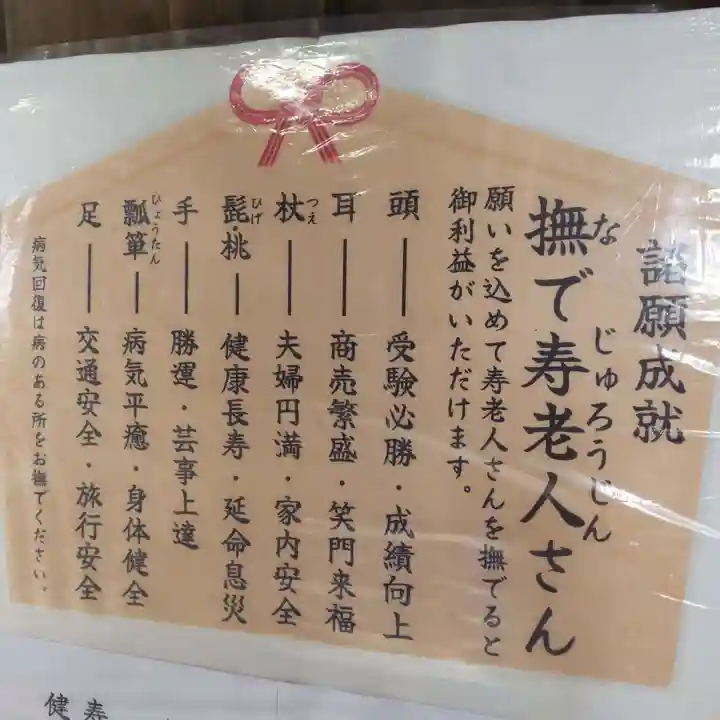 諸願成就
撫で寿老人さん
な
じゅろうじん
願いを込めて寿老人さんを撫でると
御利益がいただけます。
頭――受験必勝・成績向上
耳――商売繁盛・笑門来福
杖――夫婦円満・家内安全
つえ
髭・桃―健康長寿・延命息災
ひげ
手――勝運・芸事上達
瓢箪――病気平癒・身体健全
ひょうたん
足――交通安全・旅行安全
病気回復は病のある所をお撫でください。
寿
健